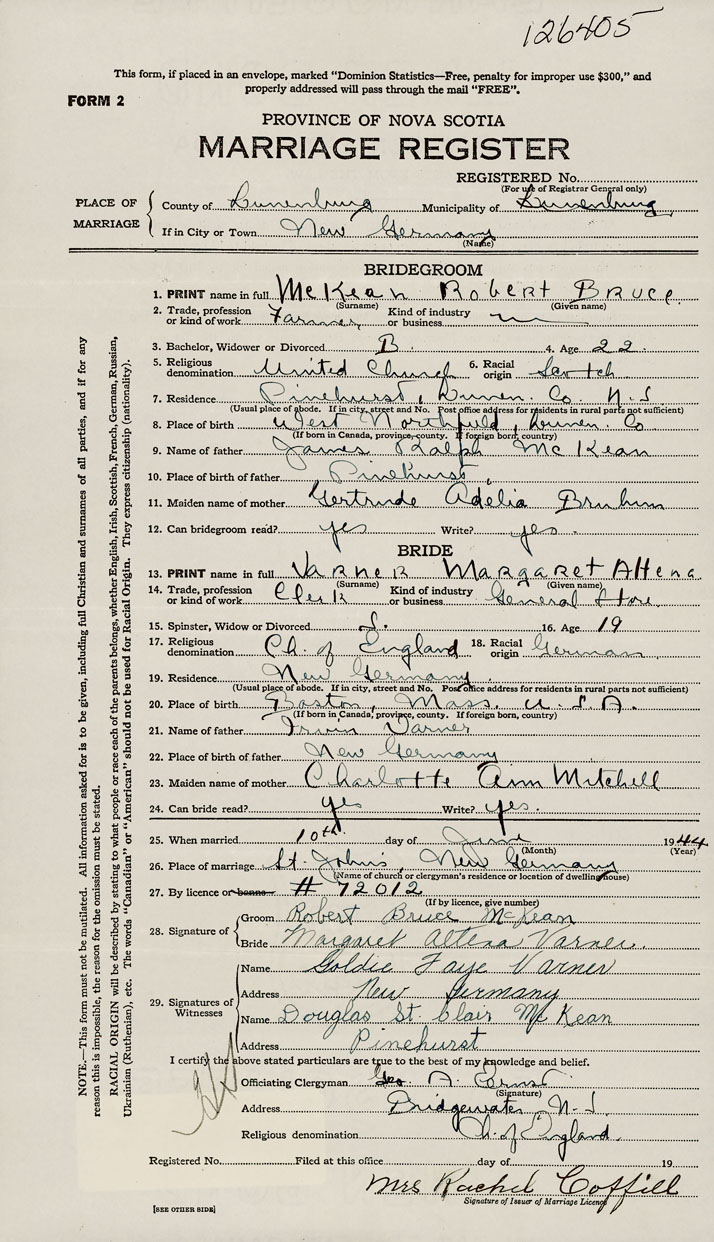 126405
This form, if placed in an envelope, marked "Dominion Statistics—Free, penalty for improper use $300," and
properly addressed will pass through the mail "FREE".
FORM 2
PROVINCE OF NOVA SCOTIA
MARRIAGE REGISTER
REGISTERED No.
(For use of Registrar General only)
PLACE OF MARRIAGE
County of Lunenburg Municipality of Lunenburg
If in City or Town New Germany
(Name)
BRIDEGROOM
1. PRINT name in full McKean Robert Bruce
(Surname) (Given name)
2. Trade, profession or kind of work Farmer Kind of industry or business
3. Bachelor, Widower or Divorced B. 4. Age 22
5. Religious denomination United Church 6. Racial origin Scotch
7. Residence Pinehurst, Lunen. Co. N.S
(Usual place of abode. If in city, street and No. Post office address for residents in rural parts not sufficient)
8. Place of birth West Northfield, Lunen. Co
(If born in Canada, province, county. If foreign born, country)
9. Name of father James Ralph McKean
10. Place of birth of father Pinehurst,
11. Maiden name of mother Gertrude Adelia Bruhm
12. Can bridegroom read? yes Write? yes.
BRIDE
13. PRINT name in full Varner Margaret Altena
(Surname) (Given name)
14. Trade, profession or kind of work Clerk Kind of industry or business General Store
15. Spinster, Widow or Divorced S. 16. Age 19
17. Religious denomination Ch. of England 18. Racial origin German
19. Residence New Germany
(Usual place of abode. If in city, street and No. Post office address for residents in rural parts not sufficient)
20. Place of birth Boston, Mass. U.S.A.
(If born in Canada, province, county. If foreign born, country)
21. Name of father Irwin Varner
22. Place of birth of father New Germany
23. Maiden name of mother Charlotte Ann Mitchell
24. Can bride read? yes Write? yes.
25. When married 10th. day of June 1944
(Month) (Year)
26. Place of marriage St. John's, New Germany
(Name of church or clergyman's residence or location of dwelling house)
27. By licence or banns # 72012
(If by licence, give number)
28. Signature of
Groom Robert Bruce McKean
Bride Margaret Altena Varner.
29. Signatures of Witnesses
Name Goldie Faye Varner
Address New Germany
Name Douglas St. Clair McKean
Address Pinehurst
I certify the above stated particulars are true to the best of my knowledge and belief.
Officiating Clergyman Geo. A. Ernst
(Signature)
Address Bridgewater, N.S.
Religious denomination Ch. of England.
Registered No. Filed at this office day of 19
Mrs Rachel Coffill
Signature of Issuer of Marriage Licence
[SEE OTHER SIDE]
NOTE.—This form must not be mutilated. All information asked for is to be given, including full Christian and surnames of all parties, and if for any
reason this is impossible, the reason for the omission must be stated.
RACIAL ORIGIN will be described by stating to what people or race each of the parents belongs, whether English, Irish, Scottish, French, German, Russian,
Ukrainian (Ruthenian), etc. The words "Canadian" or "American" should not be used for Racial Origin. They express citizenship (nationality).